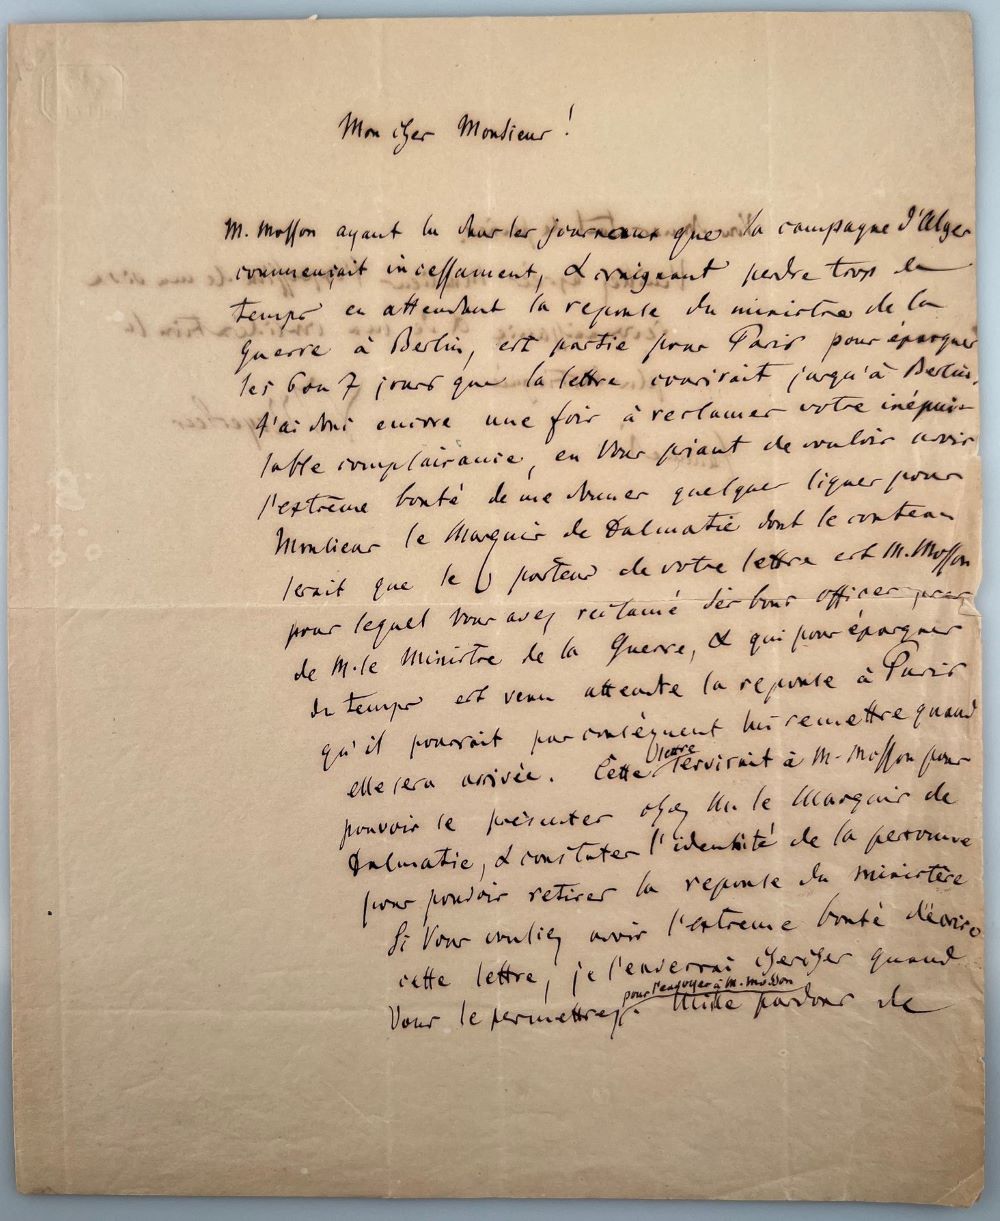 Mon cher Monsieur!
M. Mosson ayant lu dans les journeaux que la campagne d'Alger
commençait incessament, & craignant perdre trop de
temps en attendant la reponse du ministre de la
Guerre à Berlin, est partie pour Paris pour épargner
les 6 ou 7 jours que la lettre courirait jusqu'à Berlin.
J'ai donc encore une fois à reclamer votre inépui-
sable complaisance, en Vous priant de vouloir avoir
l'extrème bonté de me donner quelques lignes pour
Monsieur le Marquis de Dalmatie dont le contenu
serait que le porteur de votre lettre est M. Mosson
pour lequel Vous avez reclamé des bons offices pres
de M. le Ministre de la Guerre, & qui pour épargner
du temps est venu attendre la reponse à Paris
qu'il pourrait par conséquent lui remettre quand
elle sera arrivée. Cette lettre servirait à M. Mosson pour
pouvoir se présenter chez Mr le Marquis de
Dalmatie, & constater l'identité de la personne
pour pouvoir retirer la reponse du ministère
Si Vous vouliez avoir l'extreme bonté d'écrire
cette lettre, je l'enverrai chercher quand
Vous le permettrez pour l'envoyer à M. Mosson. Mille pardons de